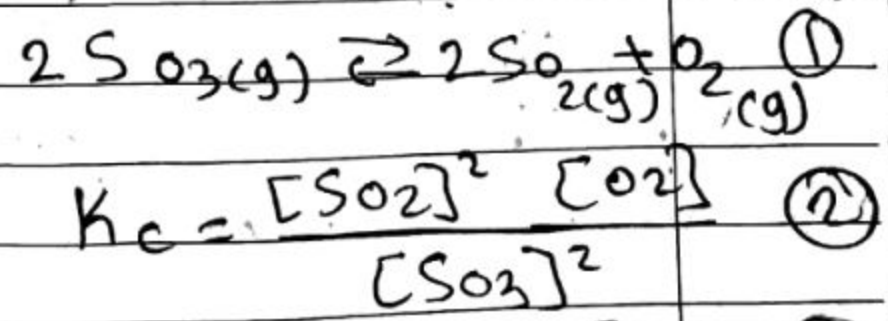 2 SO3(g) ⇄ 2SO2(g) + O2(g) ①
Kc = [SO2]² [O2] / [SO3]² ②